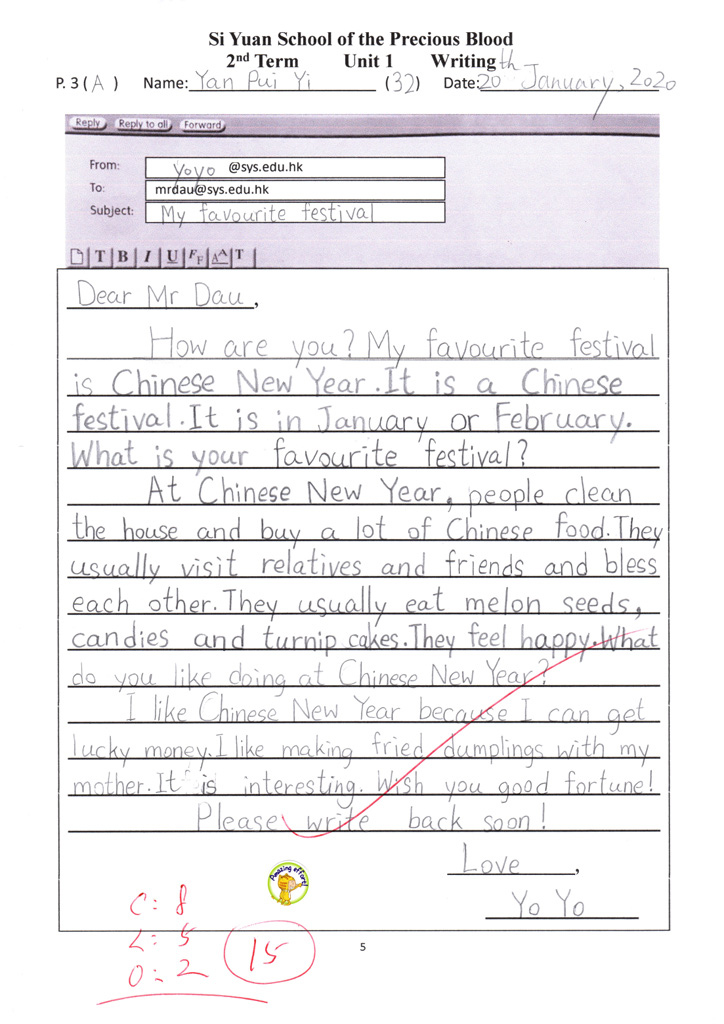 Si Yuan School of the Precious Blood
2nd Term Unit 1 Writing
P. 3 ( A ) Name: Yan Pui Yi (32) Date: 20th January, 2020
Reply Reply to all Forward
From: yoyo @sys.edu.hk
To: mrdau@sys.edu.hk
Subject: My favourite festival
T B I U FF AA T
Dear Mr Dau,
How are you? My favourite festival
is Chinese New Year. It is a Chinese
festival. It is in January or February.
What is your favourite festival?
At Chinese New Year, people clean
the house and buy a lot of Chinese food. They
usually visit relatives and friends and bless
each other. They usually eat melon seeds,
candies and turnip cakes. They feel happy. What
do you like doing at Chinese New Year?
I like Chinese New Year because I can get
lucky money. I like making fried dumplings with my
mother. It is interesting. Wish you good fortune!
Please write back soon!
Love,
Yo Yo
Amazing effort!
C: 8
L: 5
O: 2
15
5